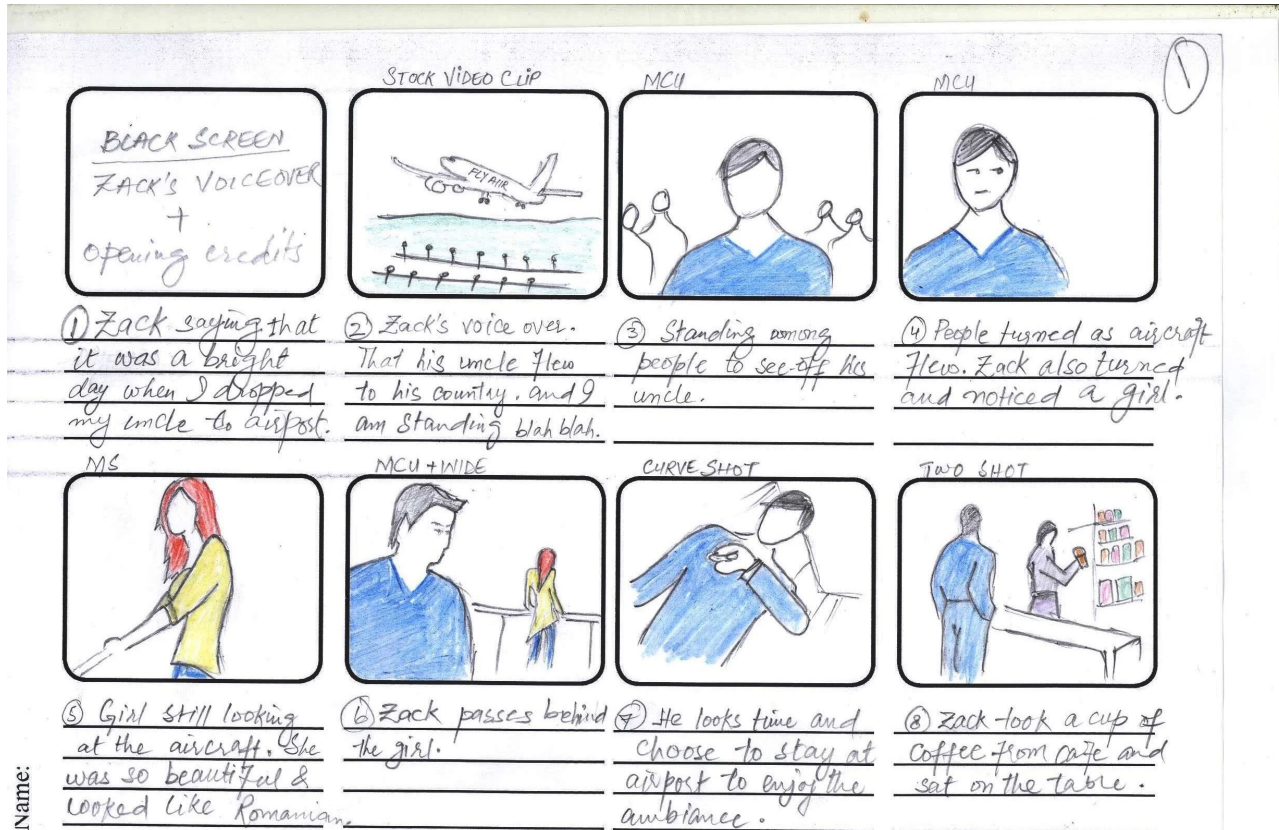 1
STOCK VIDEO CLIP
MCU
MCU
BLACK SCREEN
ZACK'S VOICEOVER
+
opening credits
FLY AIR
① Zack saying that
it was a bright
day when I dropped
my uncle to airport.
② Zack's voice over.
That his uncle flew
to his country. and I
am standing blah blah.
③ Standing among
people to see-off his
uncle.
④ People turned as aircraft
flew. Zack also turned
and noticed a girl.
MS
MCU + WIDE
CURVE SHOT
TWO SHOT
⑤ Girl still looking
at the aircraft. She
was so beautiful &
looked like Romanian.
⑥ Zack passes behind
the girl.
⑦ He looks time and
choose to stay at
airport to enjoy the
ambiance.
⑧ Zack took a cup of
coffee from cafe and
sat on the table.
Name: